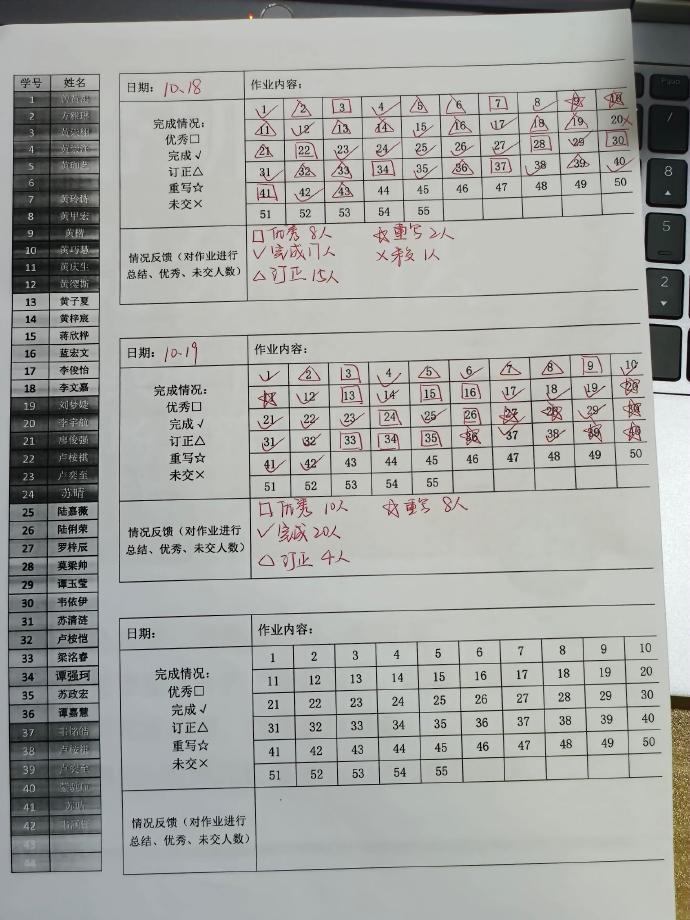 学号 姓名
1
2
3
4
5
6
7
8 黄甲宏
9 黄楷
10 黄巧慧
11 黄庆生
12
13 黄子夏
14 黄梓宸
15 蒋欣桦
16 蓝宏文
17 李俊怡
18 李文嘉
19 刘梦婕
20 李宇航
21 廖俊强
22 卢桉棋
23 卢奕至
24 苏晴
25 陆嘉薇
26 陆俐荣
27 罗梓辰
28 莫梁帅
29 谭玉莹
30 韦依伊
31 苏清涟
32 卢桉恺
33 梁洺睿
34 谭强珂
35 苏政宏
36 谭嘉慧
37
38
39 卢奕至
40
41 苏晴
42
43
44
日期: 10.18 作业内容:
完成情况:
优秀□
完成√
订正△
重写☆
未交×
1 2 3 4 5 6 7 8 9 10
11 12 13 14 15 16 17 18 19 20
21 22 23 24 25 26 27 28 29 30
31 32 33 34 35 36 37 38 39 40
41 42 43 44 45 46 47 48 49 50
51 52 53 54 55
情况反馈（对作业进行
总结、优秀、未交人数）
□优秀 8人 ☆重写 2人
√完成17人 ×未交 1人
△订正 15人
日期: 10.19 作业内容:
完成情况:
优秀□
完成√
订正△
重写☆
未交×
1 2 3 4 5 6 7 8 9 10
11 12 13 14 15 16 17 18 19 20
21 22 23 24 25 26 27 28 29 30
31 32 33 34 35 36 37 38 39 40
41 42 43 44 45 46 47 48 49 50
51 52 53 54 55
情况反馈（对作业进行
总结、优秀、未交人数）
□优秀 10人 ☆重写 8人
√完成20人
△订正 4人
日期: 作业内容:
完成情况:
优秀□
完成√
订正△
重写☆
未交×
1 2 3 4 5 6 7 8 9 10
11 12 13 14 15 16 17 18 19 20
21 22 23 24 25 26 27 28 29 30
31 32 33 34 35 36 37 38 39 40
41 42 43 44 45 46 47 48 49 50
51 52 53 54 55
情况反馈（对作业进行
总结、优秀、未交人数）
/
8
5
2